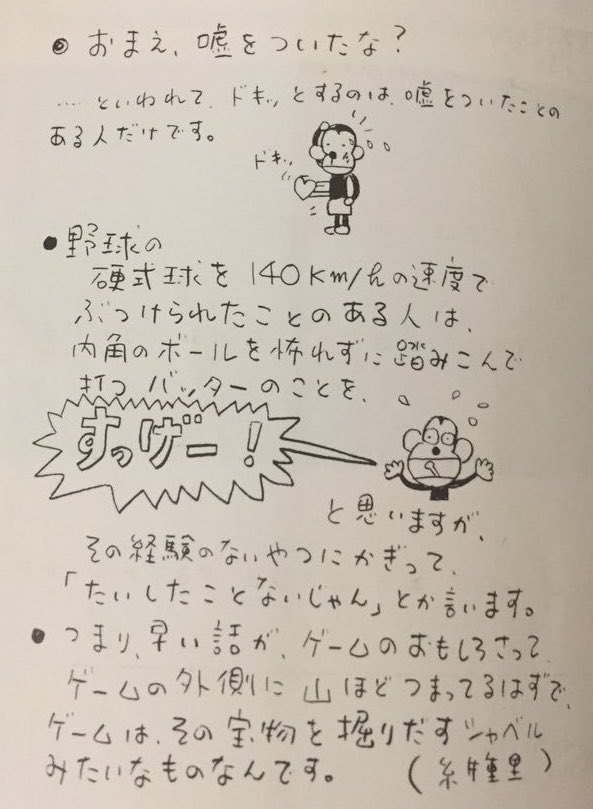 ◎ おまえ、嘘をついたな?
……といわれて、ドキッとするのは、嘘をついたことの
ある人だけです。
ドキッ
● 野球の
硬式球を 140Km/hの速度で
ぶつけられたことのある人は、
内角のボールを怖れずに踏みこんで
打つバッターのことを、
すっげー!
と思いますが、
その経験のないやつにかぎって、
「たいしたことないじゃん」とか言います。
● つまり、早い話が、ゲームのおもしろさって、
ゲームの外側に山ほどつまってるはずで、
ゲームは、その宝物を掘りだすシャベル
みたいなものなんです。 (糸重里)